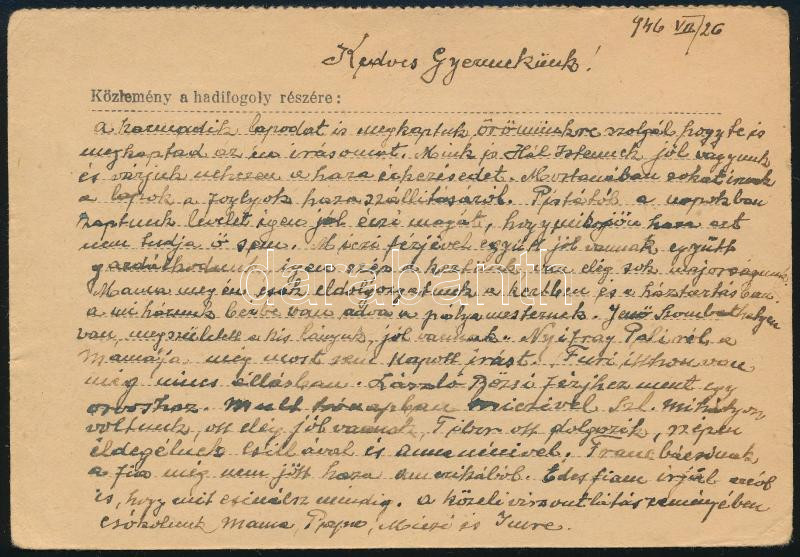 946 VII/26
Kedves Gyermekünk!
Közlemény a hadifogoly részére:
A harmadik lapodat is megkaptuk örömünkre szolgál hogy te is
megkaptad az én irásomat. Mink is Hál Istennek jól vagyunk
és várjuk nehezen a haza érkezésedet. Mostanában sokat irnak
a lapok a foglyok haza szállitásáról. Pistától a napokban
kaptunk levelet igen jól érzi magát, hogy mikor jön haza azt
nem tudja ő sem. Miczi férjével együtt jól vannak együtt
gazdálkodunk, igen szép a kertünk van elég sok majorságunk.
Mama meg én csak eldolgozgatunk a kertben és a háztartásban.
a mi házunk bérbe van adva a pályamesternek. Jenő Szombathelyen
van, megszületett a kis lányuk, jól vannak. Nyifray Paliról a
Mamája még most sem kapott irást. Furi itthon van
még nincs állásban. László Bözsi férjhez ment egy
orvoshoz. Mult hónapban Miczivel Szt. Mihályon
voltunk, ott elég jól vannak, Tibor ott dolgozik, szépen
éldegélnek Csillával és annanénivel. Franc bácsinak
a fia még nem jött haza Amerikából. Édes fiam irjál arról
is, hogy mit csinálsz mindig. A közeli viszontlátás reményében
csókolunk Mama, Papa, Miczi és Imre.
darabanth